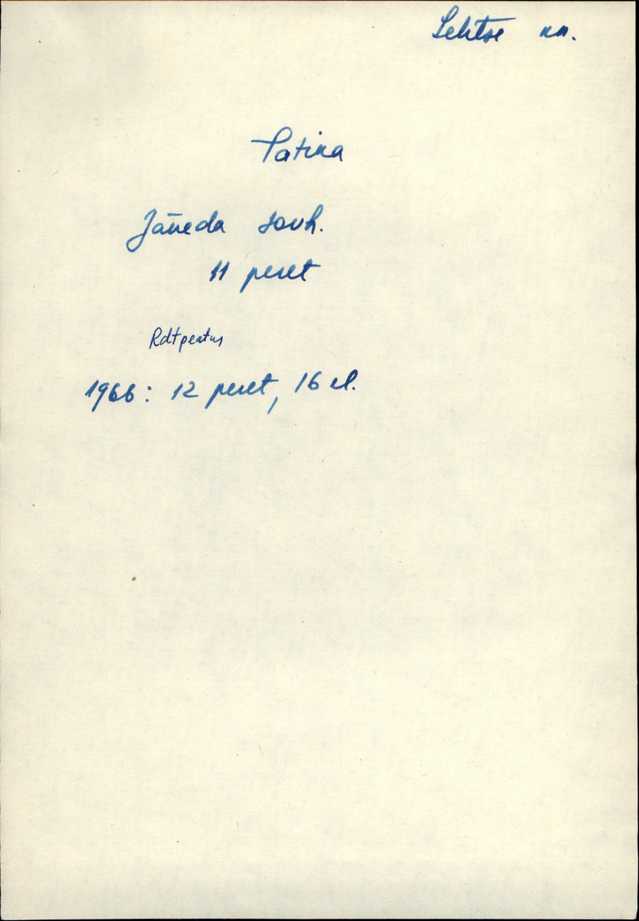 Lehtse kn.
Patika
Jäneda sovh.
11 peret
Rdtpeatus
1966: 12 peret, 16 el.